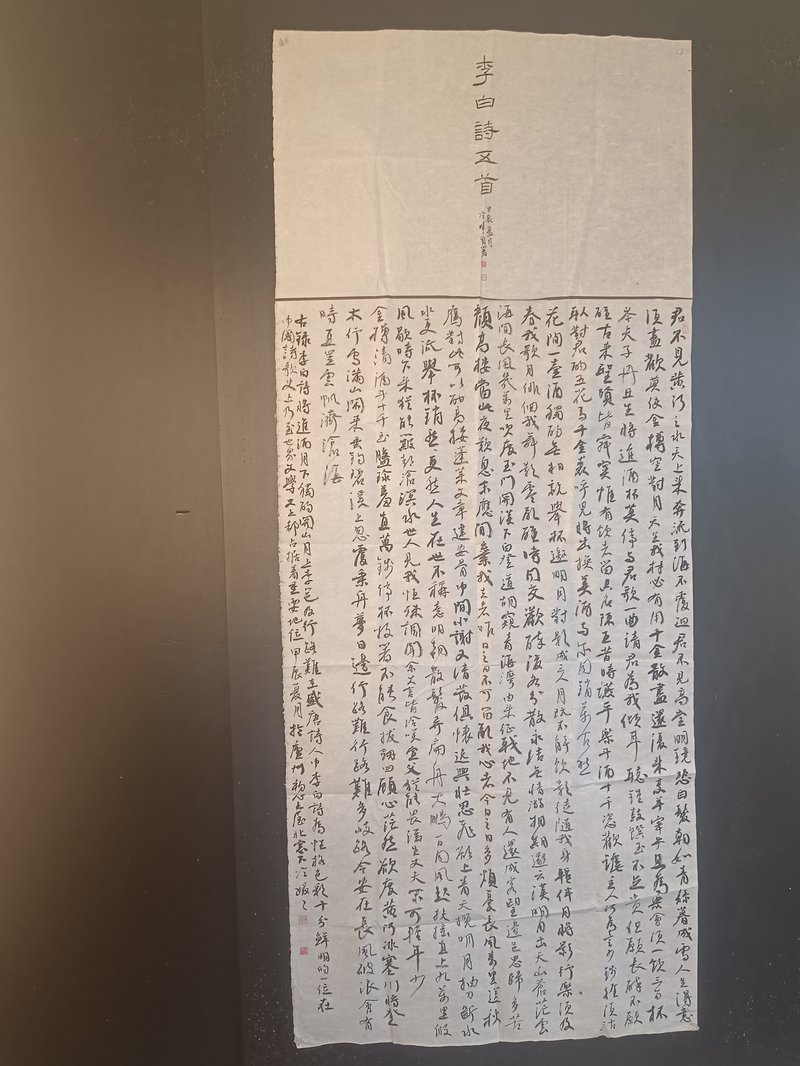 李白詩五首
甲辰夏月
君不見黃河之水天上來奔流到海不復迴君不見高堂明鏡悲白髮朝如青絲暮成雪人生得意
須盡歡莫使金樽空對月天生我材必有用千金散盡還復來烹羊宰牛且為樂會須一飲三百杯
岑夫子丹丘生將進酒杯莫停與君歌一曲請君為我傾耳聽鐘鼓饌玉不足貴但願長醉不願
醒古來聖賢皆寂寞惟有飲者留其名陳王昔時讌平樂斗酒十千恣歡謔主人何為言少錢徑須沽
取對君酌五花馬千金裘呼兒將出換美酒與尔同銷萬古愁
花間一壺酒獨酌無相親舉杯邀明月對影成三人月既不解飲影徒隨我身暫伴月將影行樂須及
春我歌月徘徊我舞影零亂醒時同交歡醉後各分散永結無情游相期邈雲漢明月出天山蒼茫雲
海間長風幾萬里吹度玉門關漢下白登道胡窺青海灣由來征戰地不見有人還戍客望邊邑思歸多苦
顏高樓當此夜歎息未應閒棄我去者昨日之日不可留亂我心者今日之日多煩憂長風萬里送秋
鴈對此可以酣高樓蓬萊文章建安骨中間小謝又清發俱懷逸興壯思飛欲上青天攬明月抽刀斷水
水更流舉杯銷愁更愁人生在世不稱意明朝散髮弄扁舟大鵬一日同風起扶搖直上九萬里假
風歇時下來猶能簸却滄溟水世人見我恒殊調聞余大言皆冷笑宣父猶能畏後生丈夫未可輕年少
金樽清酒斗十千玉盤珍羞直萬錢停杯投箸不能食拔劍四顧心茫然欲度黃河冰塞川將登
太行雪滿山閒來垂釣碧溪上忽復乘舟夢日邊行路難行路難多歧路今安在長風破浪會有
時直掛雲帆濟滄海
右錄李白詩將進酒月下獨酌關山月上李邕及行路難在盛唐詩人中李白詩為性格色彩十分鮮明的一位在
中國詩歌史上乃至世界文學史上都占据着重要地位甲辰夏月於廬州北窗下